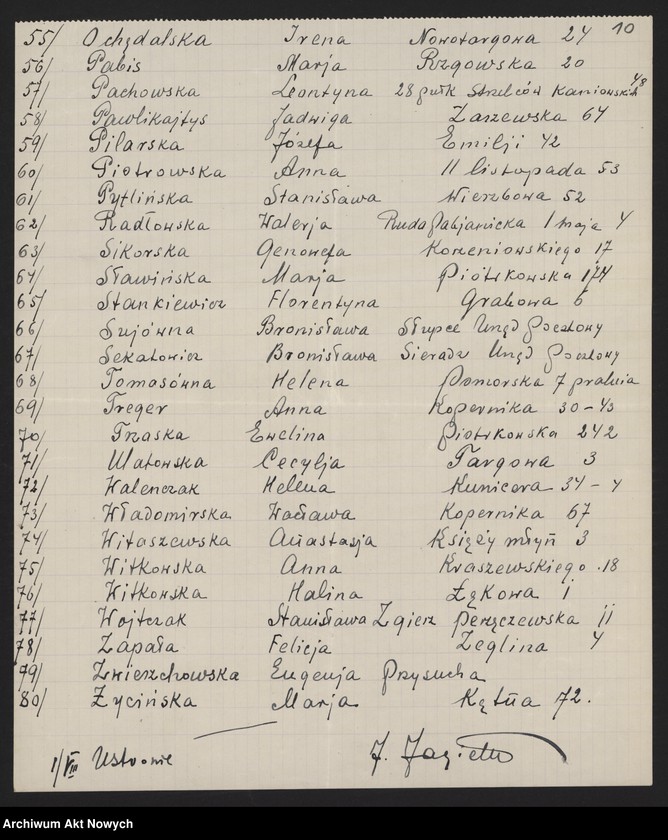 10
55/ Ochędalska Irena Nowotargowa 24
56/ Pabis Marja Rzgowska 20
57/ Pachowska Leontyna 28 pułk Strzelców Kaniowskich 48
58/ Pawlikajtys Jadwiga Zarzewska 64
59/ Pilarska Józefa Emilji 42
60/ Piotrowska Anna 11 listopada 53
61/ Pytlińska Stanisława Wierzbowa 52
62/ Radłowska Walerja Ruda Pabjanicka 1 maja 4
63/ Sikorska Genowefa Korzeniowskiego 17
64/ Sławińska Marja Piotrkowska 174
65/ Stankiewicz Florentyna Grabowa 6
66/ Sujówna Bronisława Słupce Urząd Pocztowy
67/ Sekatowicz Bronisława Sieradz Urząd Pocztowy
68/ Tomasówna Helena Pomorska 7 pralnia
69/ Treger Anna Kopernika 30-43
70/ Trzaska Ewelina Piotrkowska 242
71/ Ulatowska Cecylja Targowa 3
72/ Walenczak Helena Kunicera 34-4
73/ Władomirska Wacława Kopernika 67
74/ Witaszewska Anastazja Księży młyn 3
75/ Witkowska Anna Kraszewskiego 18
76/ Witkowska Halina Łąkowa 1
77/ Wojtczak Stanisława Zgierz Perzęczewska 11
78/ Zapała Felicja Żeglina 4
79/ Zwierzchowska Eugenja Przysucha
80/ Życińska Marja Kątna 72.
1/VIII Ustronie J. Jagiełło
Archiwum Akt Nowych